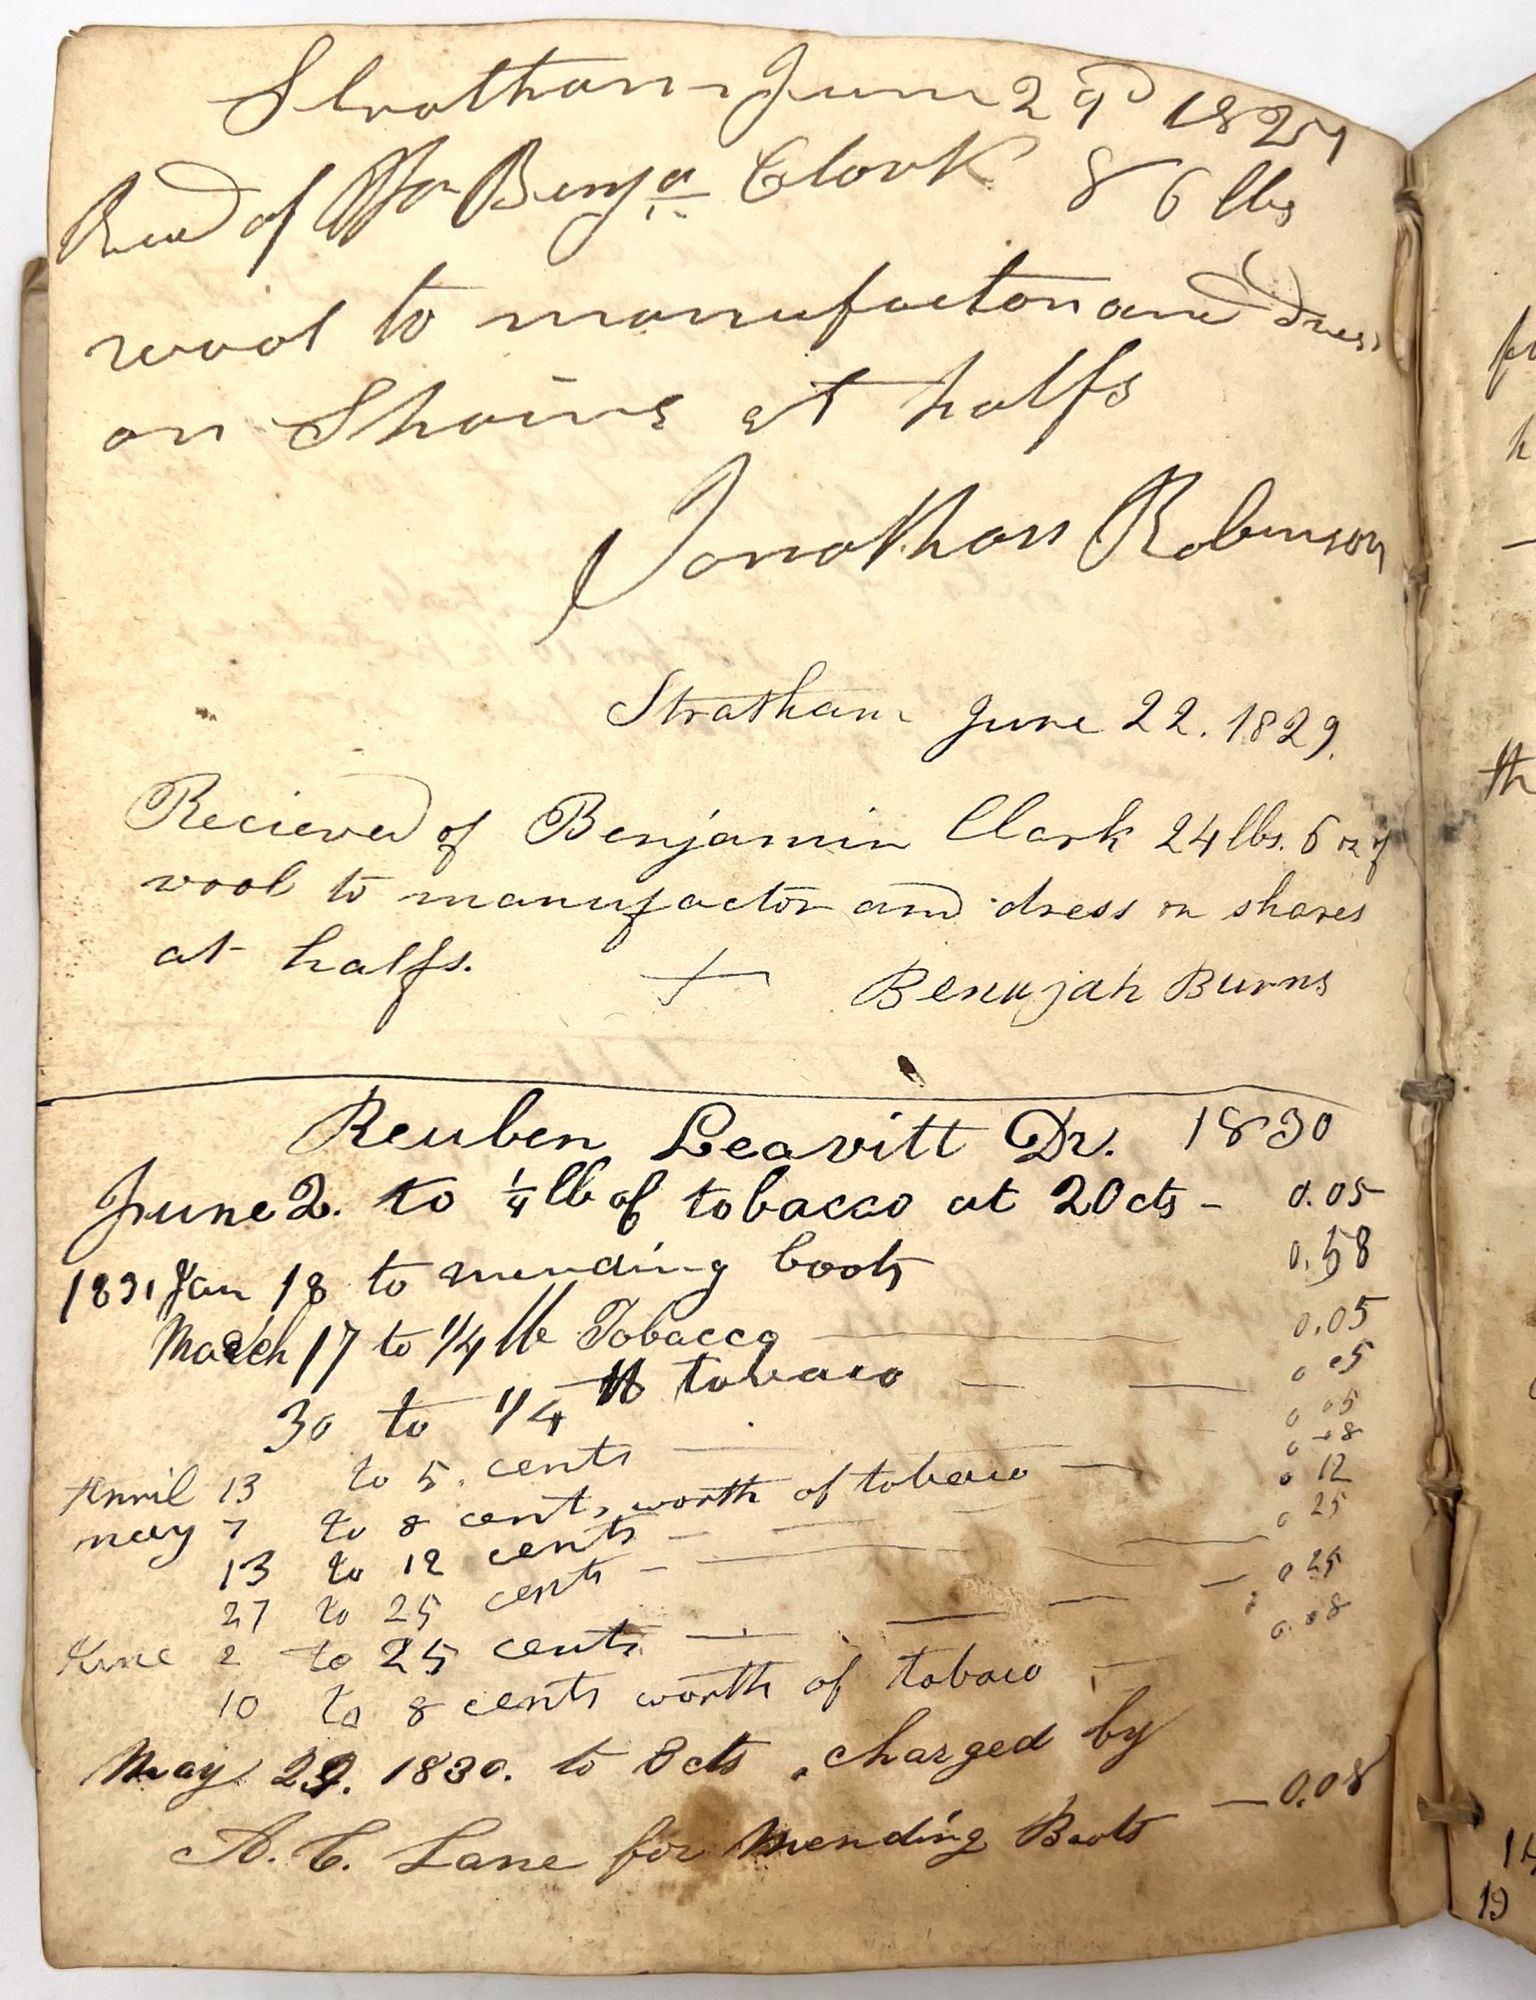 Stratham June 29d 1827
Recd of Mr Benja Clark 86 lbs
wool to manufactor and dress
on Shairs at halfs
Jonathan Robinson
Stratham June 22. 1829.
Recieved of Benjamin Clark 24 lbs. 6 oz of
wool to manufactor and dress on shares
at halfs. Benajah Burns
Reuben Leavitt Dr. 1830
June 2. to 1/4 lb of tobacco at 20 cts - 0.05
1831 Jan 18 to mending boots 0.58
March 17 to 1/4 lb Tobacco 0.05
30 to 1/4 lb tobaco 0 05
April 13 to 5 cents 0 05
may 7 to 8 cents worth of tobaco 0 08
13 to 12 cents 0 12
27 to 25 cents 0 25
June 2 to 25 cents 0 25
10 to 8 cents worth of tobaco 0.08
May 29. 1830. to 8 cts charged by
A. C. Lane for mending Boots - 0.08
th
19